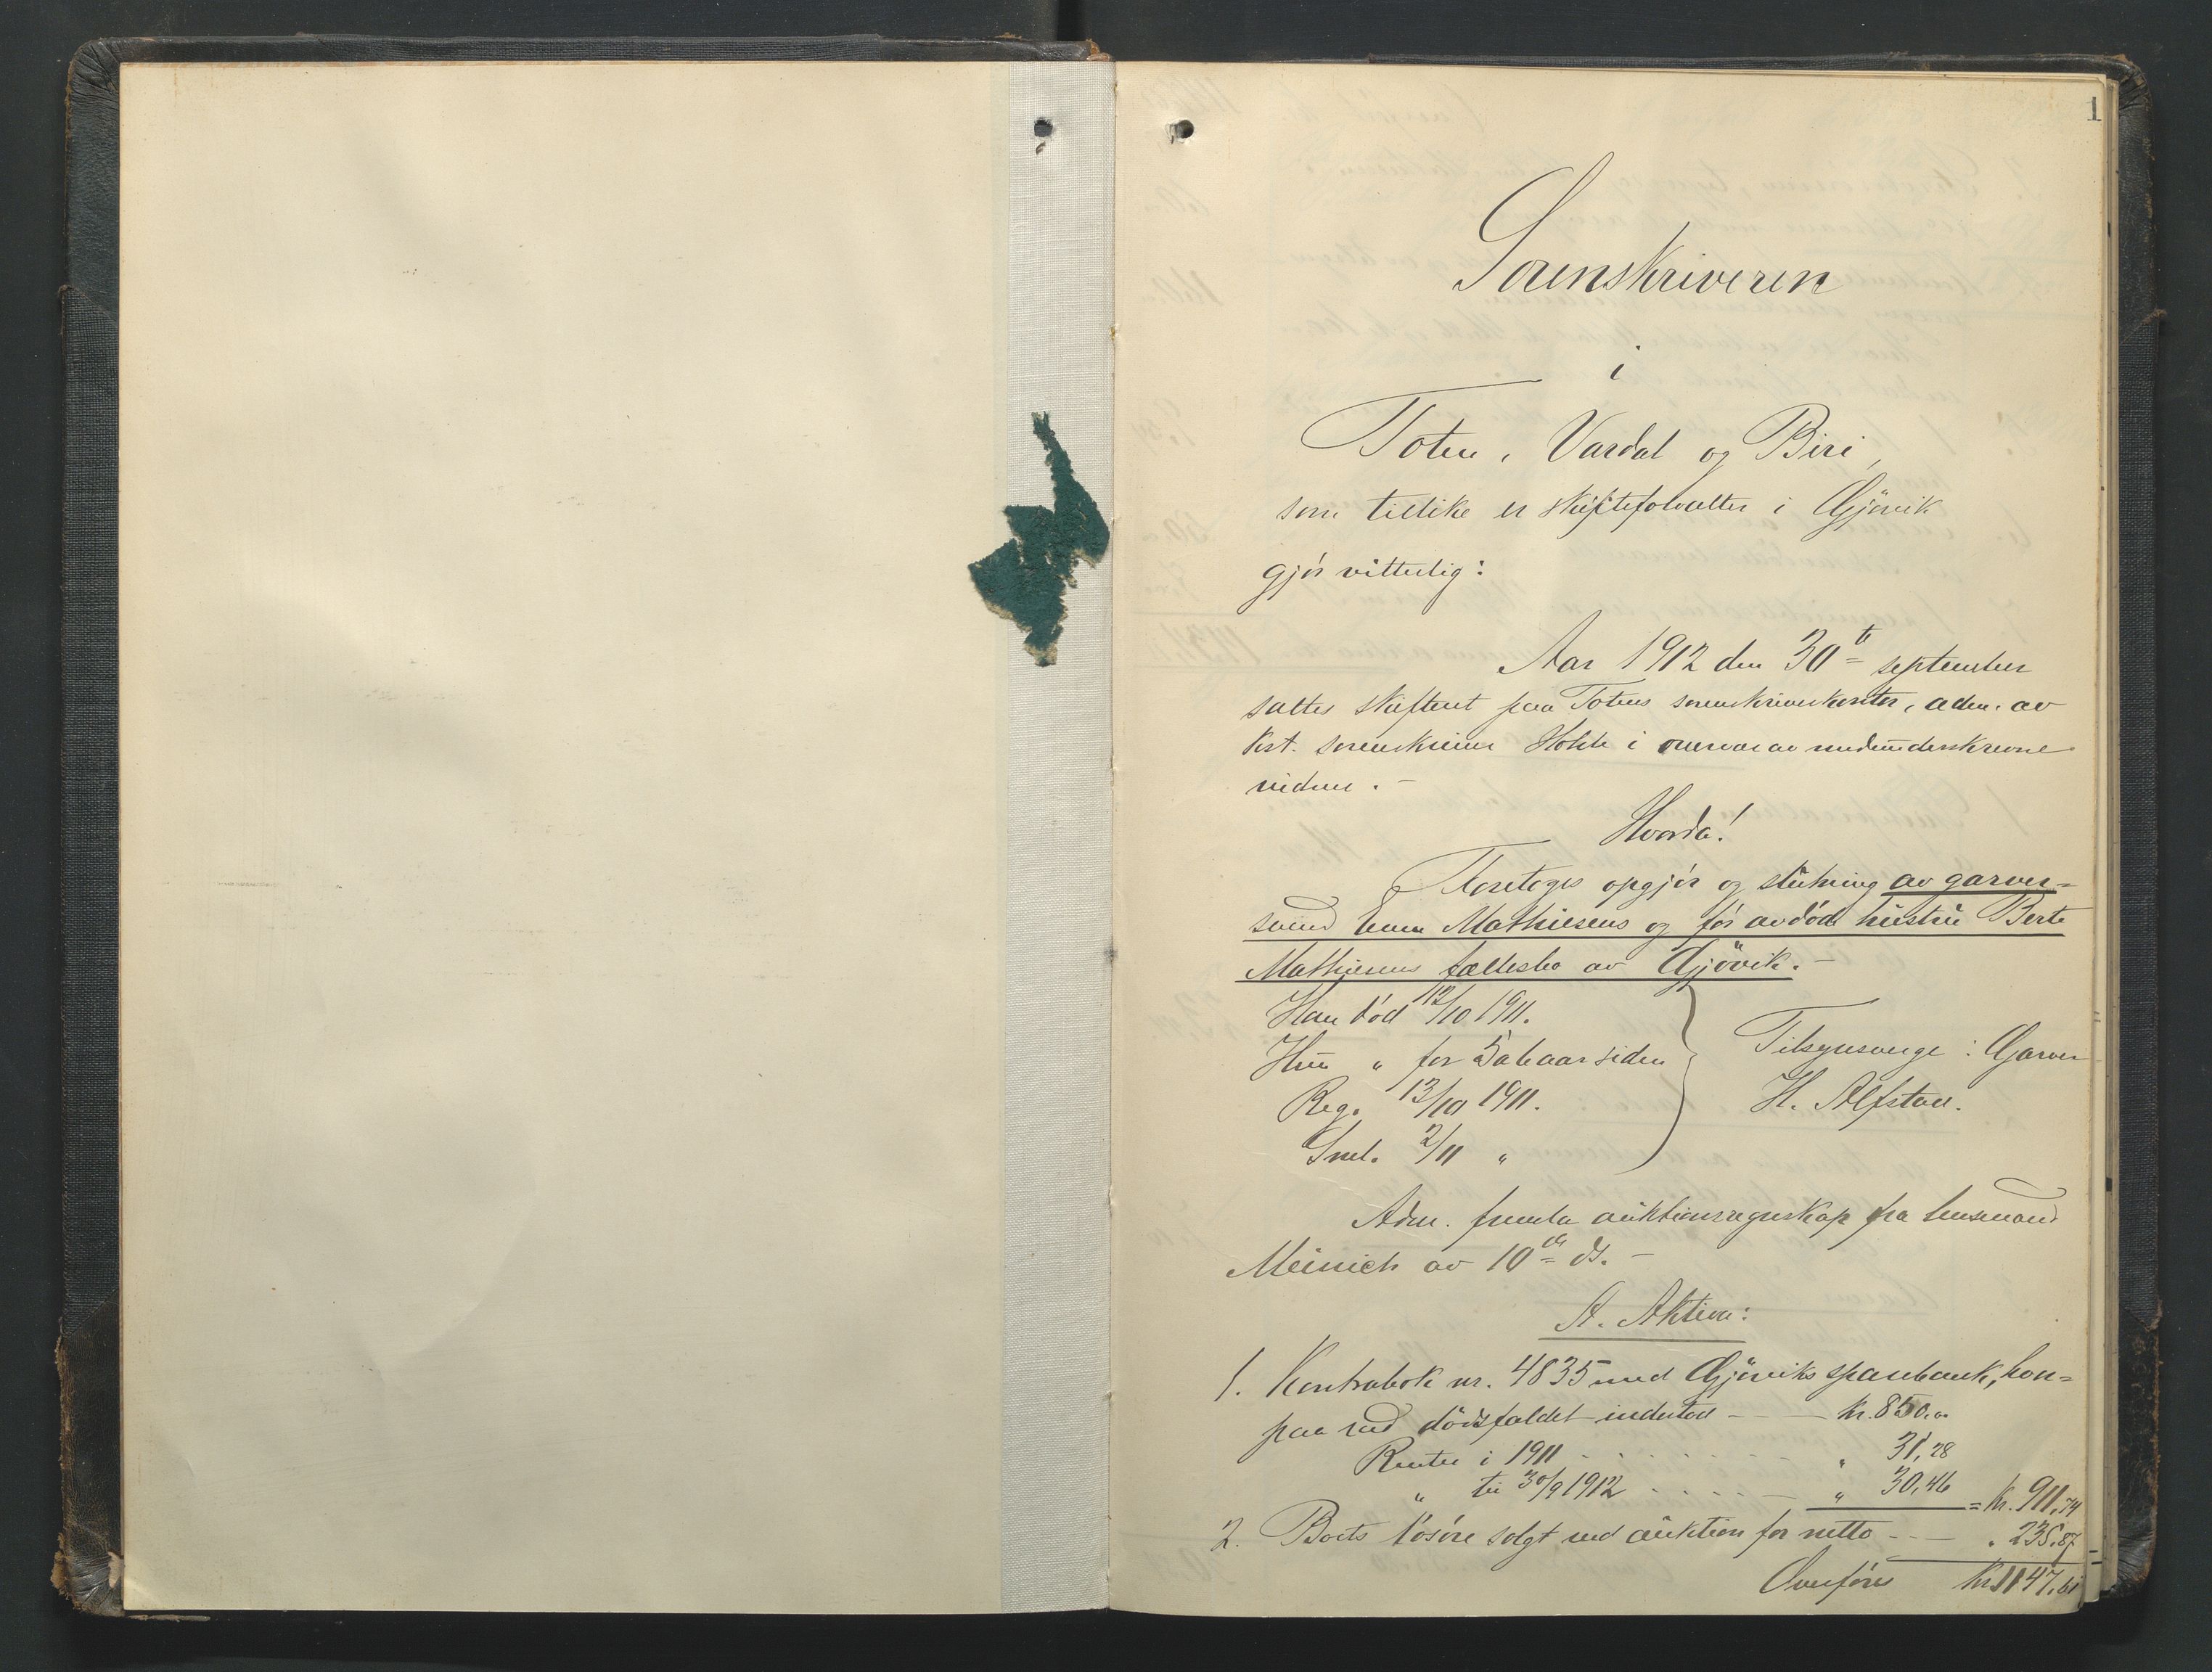 1
Sorenskriveren
i
Toten, Vardal og Biri,
som tillike er skifteforvalter i Gjövik
gjør vitterlig:
Aar 1912 den 30te september
sattes skifteret paa Totens sorenskriverkontor, adm. av
kst. sorenskriver Holst i overvær av medunderskrevne
vidner. -
Hvorda!
Foretoges opgjør og slutning av garver-
svend Even Mathiesens og før avdöde hustru Berte
Mathiesens fællesbo av Gjövik. -
Han død 12/10 1911.
Hun " for 5 a 6 aar siden
Reg. 13/10 1911.
Indl. 2/11 "
Tilsynsverge: Garver
H. Alfstad.
Adm. fremla auktionsregnskap fra lensmand
Meinich av 10de ds. -
A. Aktiva:
1. Kontrabok nr. 4835 med Gjöviks sparebank, hvor-
paa ved dödsfaldet indestod - - kr. 850,00
Renter i 1911 . . . . . . - " 31,28
" til 30/9 1912 . . . . - " 30,46 = kr. 911,74
2. Boets løsøre solgt ved auktion for netto - - - " 235,87
Overføres kr. 1147,61